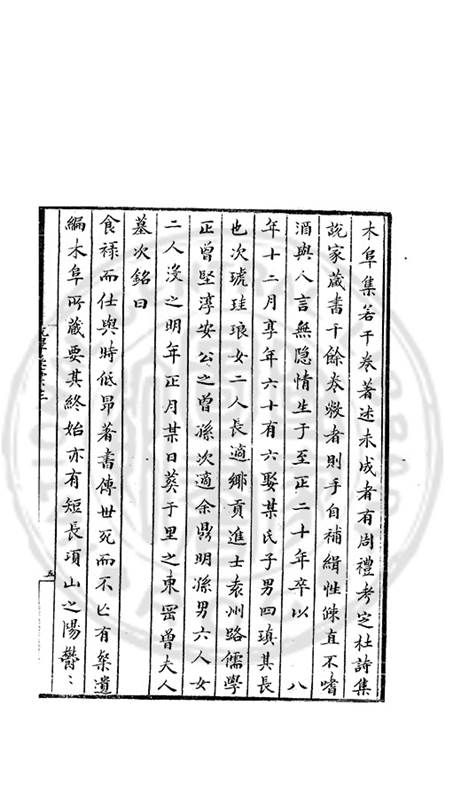 木阜集若干卷著述未成者有周禮考定杜詩集
說家蔵書千餘卷敝者則手自補緝性竦直不嗜
酒與人言無隠情生于至正二十年卒以　八
年十二月享年六十有六娶某氏子男四瑱其長
也次琥珪琅女二人長適鄉貢進士袁州路儒學
正曾堅淳安公之曾孫次適余鼎明孫男六人女
二人沒之明年正月某日葬于里之東岡曾夫人
墓次銘曰
食祿而仕與時低昻著書傳世死而不亡有粲遺
編木阜所蔵要其終始亦有短長項山之陽鬱：
五